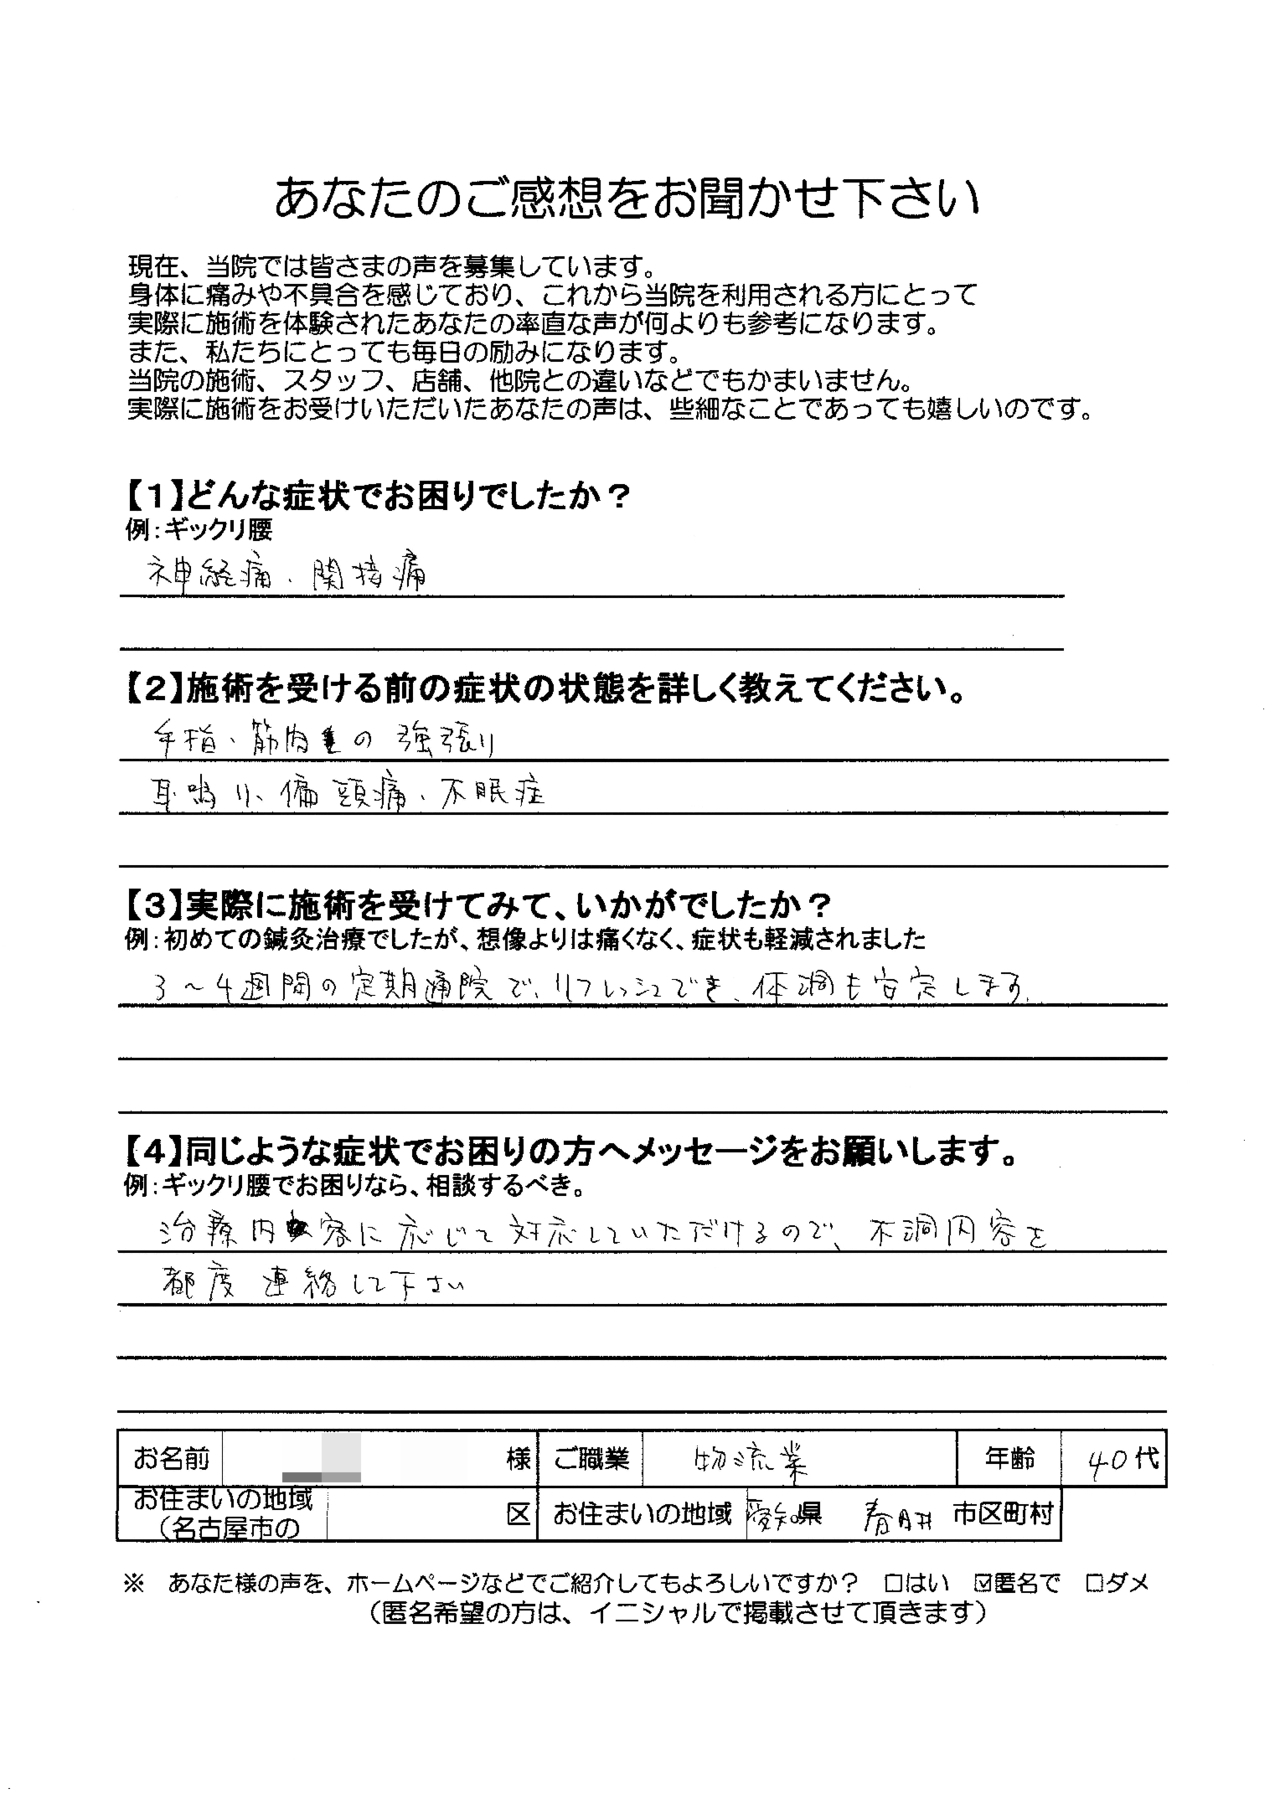 あなたのご感想をお聞かせ下さい
現在、当院では皆さまの声を募集しています。
身体に痛みや不具合を感じており、これから当院を利用される方にとって
実際に施術を体験されたあなたの率直な声が何よりも参考になります。
また、私たちにとっても毎日の励みになります。
当院の施術、スタッフ、店舗、他院との違いなどでもかまいません。
実際に施術をお受けいただいたあなたの声は、些細なことであっても嬉しいのです。
【1】どんな症状でお困りでしたか？
例：ギックリ腰
神経痛、関接痛
【2】施術を受ける前の症状の状態を詳しく教えてください。
手指、筋肉の強張り
耳鳴り、偏頭痛、不眠症
【3】実際に施術を受けてみて、いかがでしたか？
例：初めての鍼灸治療でしたが、想像よりは痛くなく、症状も軽減されました
3～4週間の定期通院で、リフレッシュでき、体調も安定します。
【4】同じような症状でお困りの方へメッセージをお願いします。
例：ギックリ腰でお困りなら、相談するべき。
治療内容に応じて対応していただけるので、不調内容を
都度連絡して下さい
お名前 様 ご職業 物流業 年齢 40代
お住まいの地域（名古屋市の 区 お住まいの地域 愛知県 春日井 市区町村
※ あなた様の声を、ホームページなどでご紹介してもよろしいですか？ □はい ☑匿名で □ダメ
（匿名希望の方は、イニシャルで掲載させて頂きます）